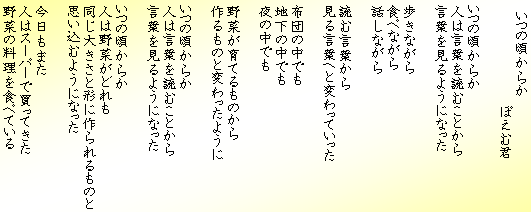 いつの頃からか
ぽえむ君
いつの頃からか
人は言葉を読むことから
言葉を見るようになった
歩きながら
食べながら
話しながら
読む言葉から
見る言葉へと変わっていった
布団の中でも
地下の中でも
夜の中でも
野菜が育てるものから
作るものと変わったように
いつの頃からか
人は言葉を読むことから
言葉を見るようになった
いつの頃からか
人は野菜がどれも
同じ大きさと形に作られるものと
思い込むようになった
今日もまた
人はスーパーで買ってきた
野菜の料理を食べている